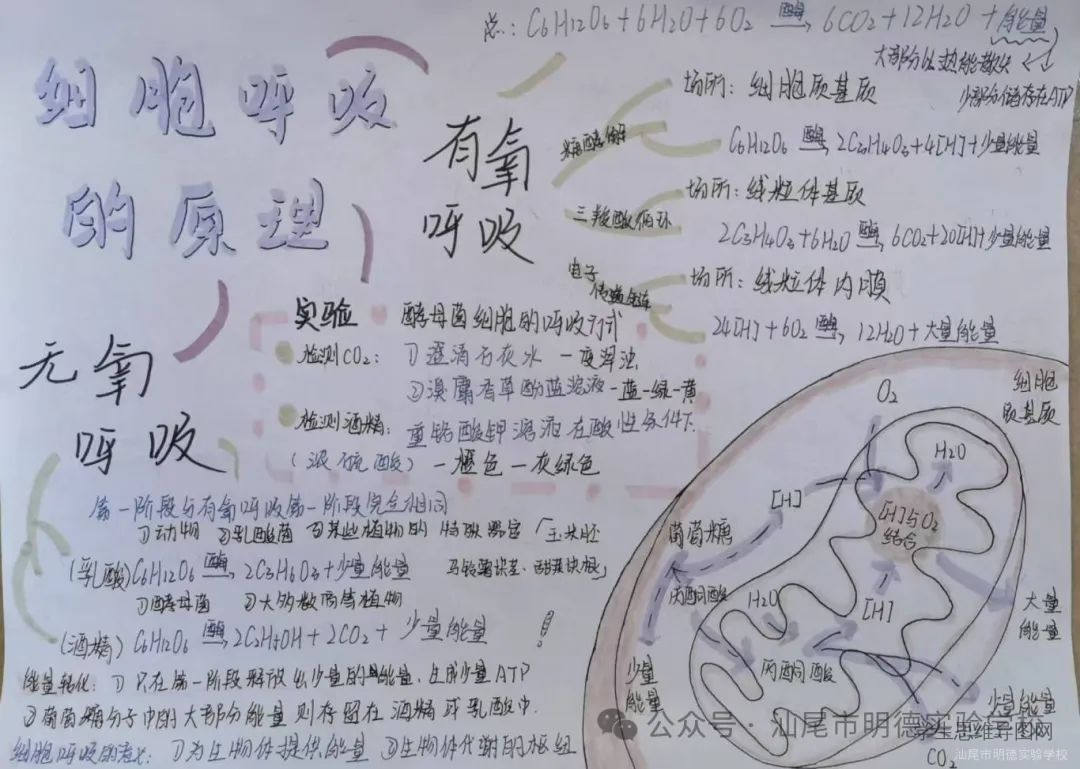 细胞呼吸
的原理
总:C6H12O6+6H2O+6O2 酶→ 6CO2+12H2O+能量
大部分以热能散失
少部分储存在ATP
有氧
呼吸
糖酵解
场所:细胞质基质
C6H12O6 酶→ 2C3H4O3+4[H]+少量能量
三羧酸循环
场所:线粒体基质
2C3H4O3+6H2O 酶→ 6CO2+20[H]+少量能量
电子
传递链
场所:线粒体内膜
24[H]+6O2 酶→ 12H2O+大量能量
实验 酵母菌细胞的呼吸方式
检测CO2: ①澄清石灰水 一变浑浊
②溴麝香草酚蓝溶液 一蓝一绿一黄
检测酒精: 重铬酸钾溶液在酸性条件下
(浓硫酸) 一橙色一灰绿色
无氧
呼吸
第一阶段与有氧呼吸第一阶段完全相同
①动物 ②乳酸菌 ③某些植物的特殊器官「玉米胚
马铃薯块茎、甜菜块根」
(乳酸) C6H12O6 酶→ 2C3H6O3+少量能量
①酵母菌 ②大多数高等植物
(酒精) C6H12O6 酶→ 2C2H5OH+2CO2+少量能量
能量转化:①只在第一阶段释放出少量的能量、生成少量ATP
②葡萄糖分子中的大部分能量则存留在酒精或乳酸中.
细胞呼吸的意义:①为生物体提供能量 ②生物体代谢的枢纽
细胞
质基质
O2
H2O
[H]
[H]与O2
结合
葡萄糖
丙酮酸
H2O
[H]
大量
能量
丙酮酸
少量
能量
少量能量
CO2
公众号·汕尾市明德实验学校
学生思维导图网
汕尾市明德实验学校